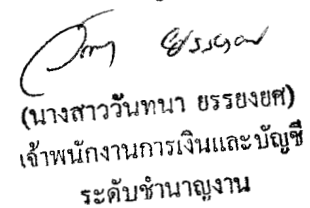 (นางสาววันทนา ยรรยงยศ)
เจ้าพนักงานการเงินและบัญชี
ระดับชำนาญงาน